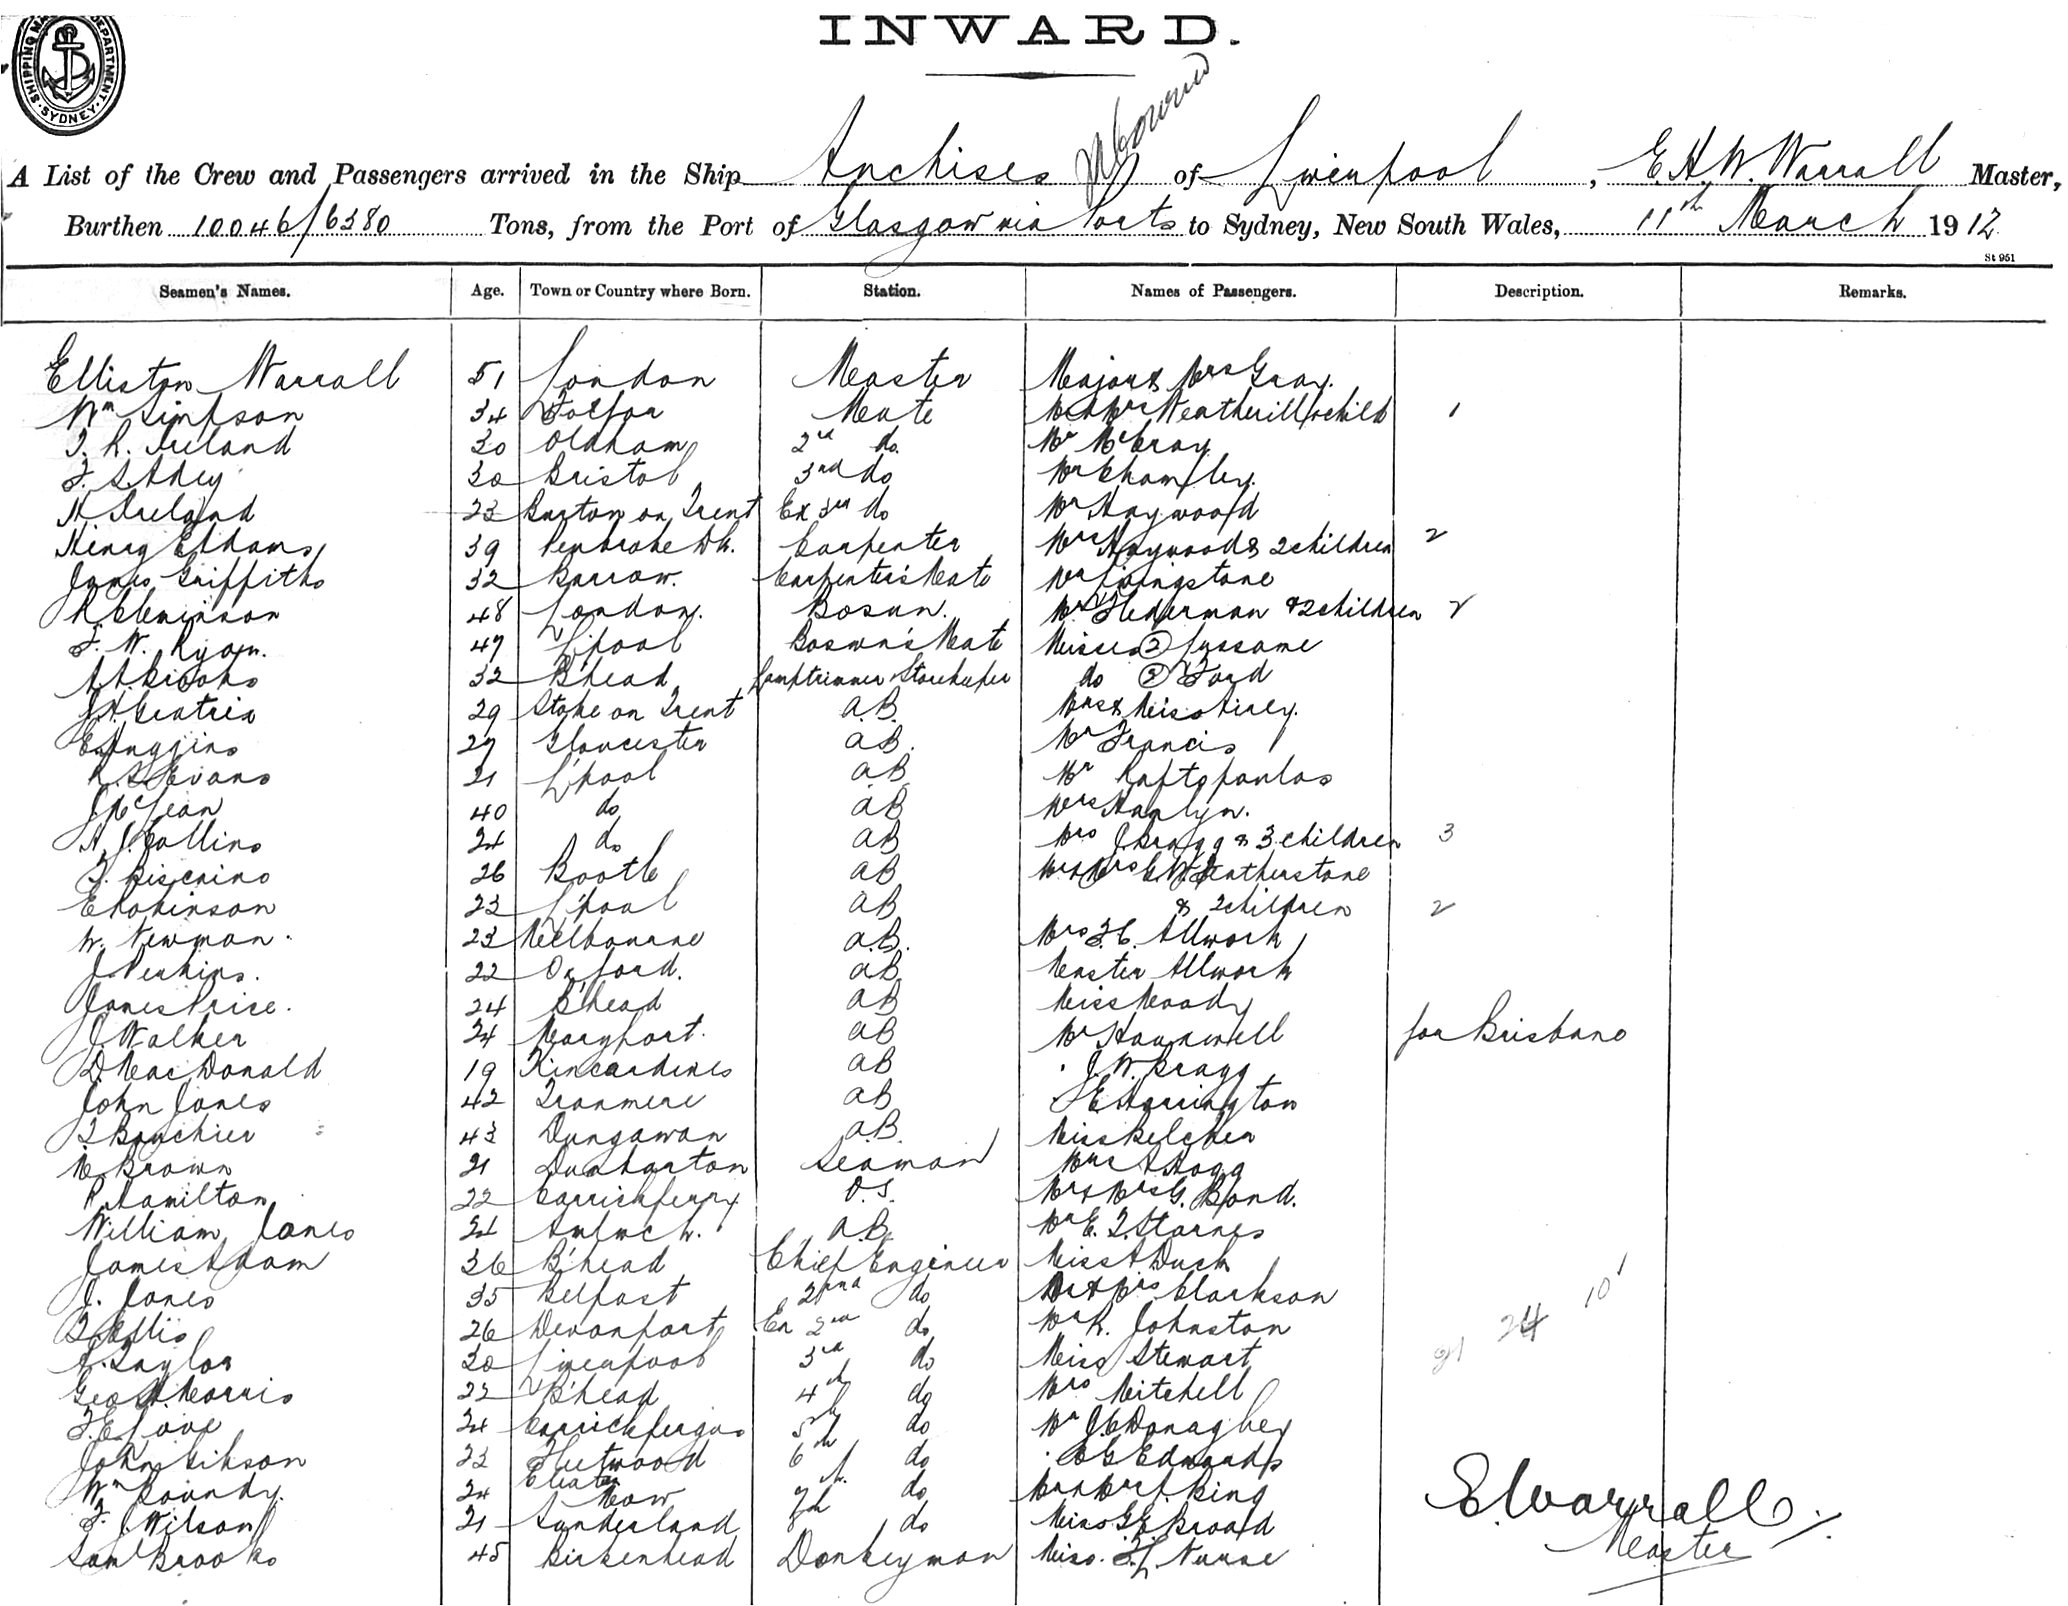 INWARD.
SHIPPING MASTER'S DEPARTMENT. SYDNEY.
A List of the Crew and Passengers arrived in the Ship Anchises of Liverpool, E. H. W. Warrall Master,
Burthen 10046/6380 Tons, from the Port of Glasgow via Ports to Sydney, New South Wales, 11th March 1912
St 951
Seamen's Names. Age. Town or Country where Born. Station. Names of Passengers. Description. Remarks.
Elliston Warrall 51 London Master Major & Mrs Gray.
Wm Simpson 34 Mate Mr & Mrs Weatherill & child 1
Ireland 30 Oldham 2nd do. Mr McCray
30 Bristol 3rd do Mr
H Ireland 23 Burton on Trent Ex 3rd do Mr Haywood
Henry 39 Pembroke Dk. Carpenter Mrs Haywood & 2 children 2
James Griffiths 32 Barrow. Carpenter's Mate Mr Livingstone
48 London. Bosun. Mrs Hederman & 2 children 2
F. W. Ryan. 47 L'pool Boswn's Mate Misses (2)
32 B'head Lamptrimmer Storekeeper do (2) Ford
29 Stoke on Trent A.B. Mrs & Miss Airey.
E Huggins 27 Gloucester AB. Mr Francis
Evans 21 L'pool AB Mr Raftopoulos
J McLean 40 do AB Mrs Hamlyn.
H. J. Collins 24 do AB Mrs J Bragg & 3 children 3
26 Bootle AB Mr & Mrs C. W. Featherstone
E Robinson 23 L'pool AB & 2 children 2
W. Newman. 23 Melbourne A.B. Mrs F. C. Allwork
J Perkins. 22 Oxford. AB Master Allwork
James Price. 24 B'head AB Miss Moody
J. Walker 24 Maryport. AB Mr for Brisbane
D. MacDonald 19 Kincardines AB J. W. Bragg
John Jones 42 Tranmere AB E Harrington
T Bouchier 43 Dungawan A.B. Miss Belcher
M Brown 21 Dunbarton Seaman Mrs A Hogg
R Hamilton 22 O.S. Mr & Mrs G. Bond.
William Jones 21 Amlwch. A.B. Mr E. T. Starnes
James Adam 36 B'head Chief Engineer Miss A Duck
J. Jones 35 Belfast 2nd do Mr & Mrs Clarkson
T. Ellis 26 Devonport Ex 2nd do Mr R. Johnston
A. Taylor 30 Liverpool 3rd do Miss Stewart
Geo H. Morris 22 B'head 4th do Mrs Mitchell
F. E. Love 24 Carrickfergus 5th do Mr J. C. Donaghey
John Gibson 22 Fleetwood 6th do G Edwards
Wm Boundy. 24 7th do Mr & Mrs J. King
F. J. Wilson 21 Sunderland 8th do Miss G E. Broad
Saml Brooks 45 Birkenhead Donkeyman Miss. F. L Nurse
24 10
E. Warrall
Master